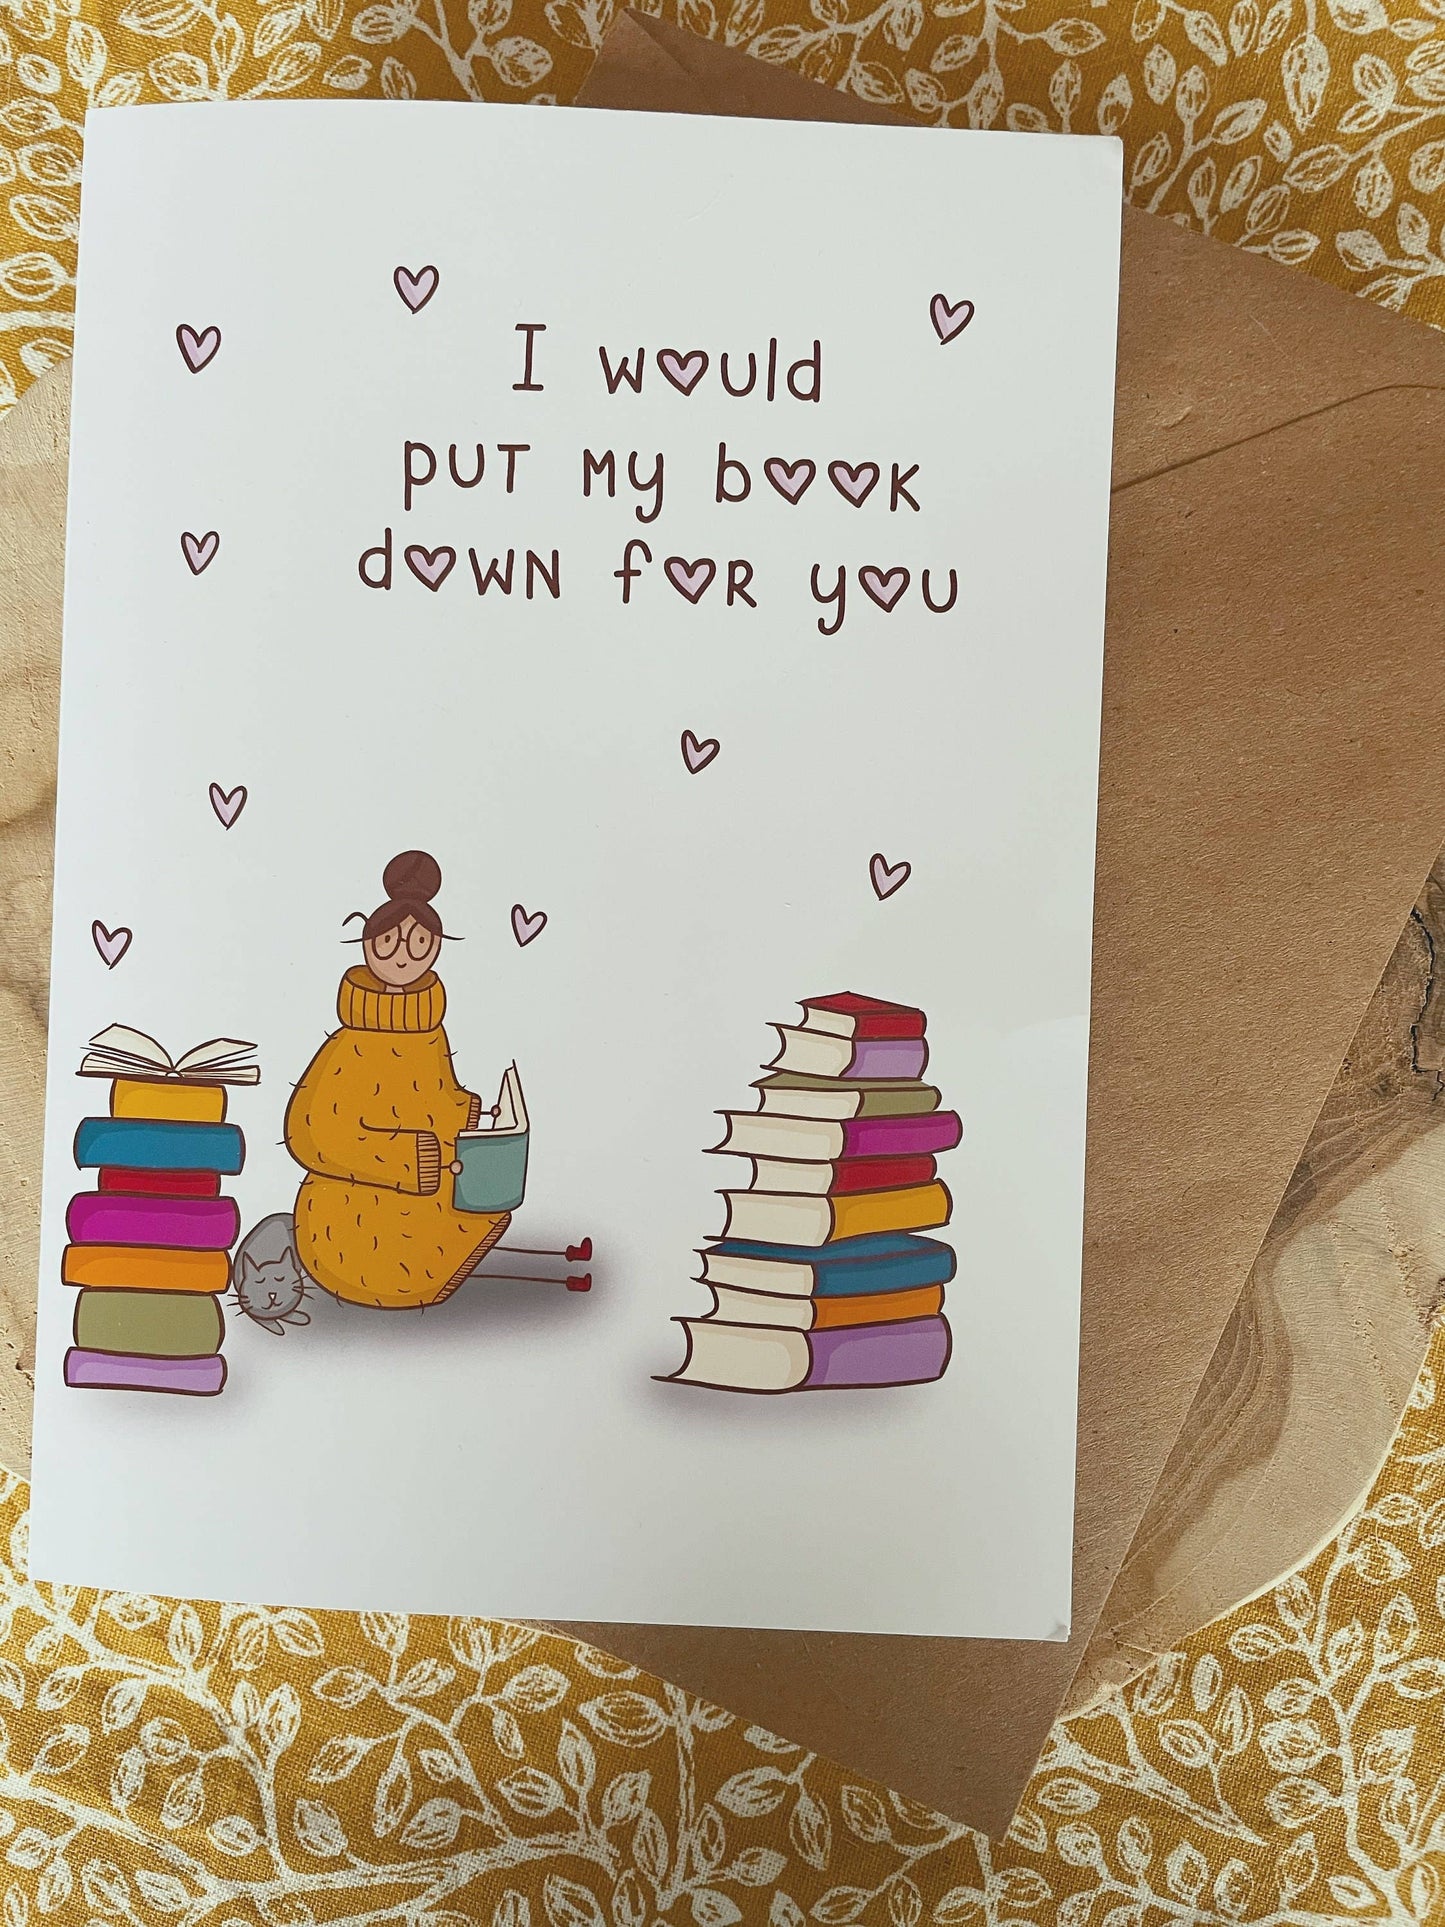 I would
put my book
down for you